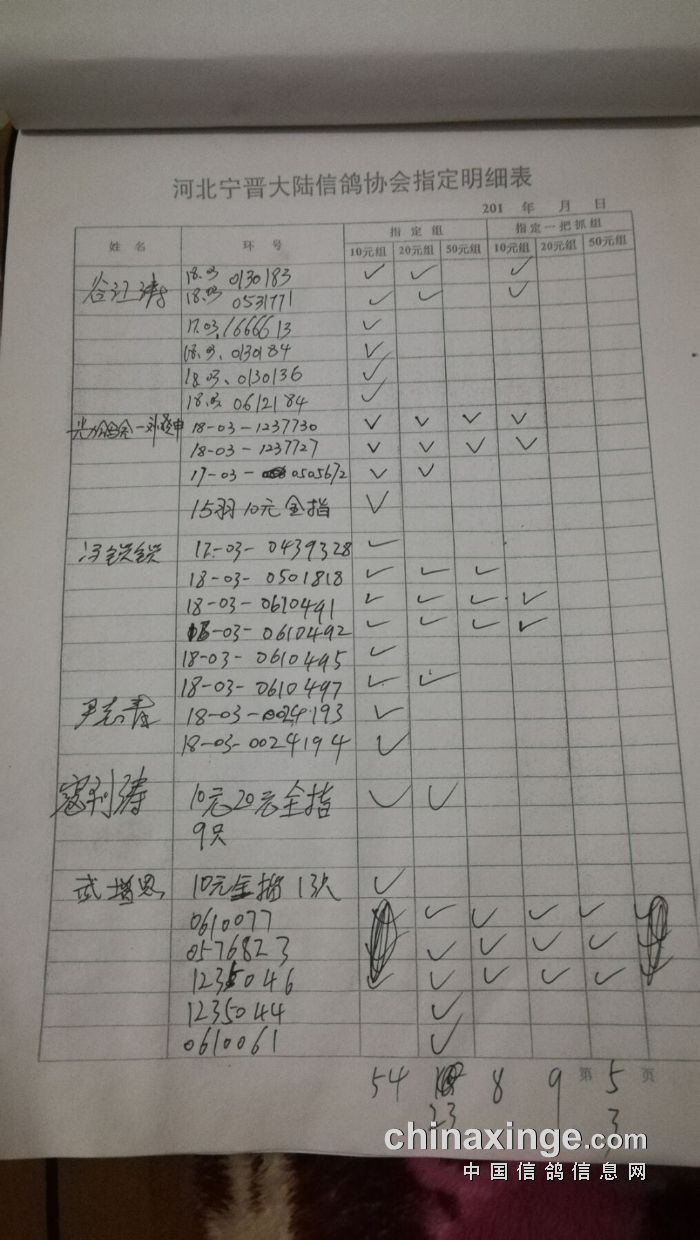 河北宁晋大陆信鸽协会指定明细表
201 年 月 日
姓名 环号 指定组 指定一把抓组
10元组 20元组 50元组 10元组 20元组 50元组
谷江涛 18.03 0130183 ✓ ✓ ✓
18.03 0531771 ✓ ✓ ✓
17.03.1666613 ✓
18.03.0130184 ✓
18.03.0130136 ✓
18.03 0612184 ✓
18-03-1237730 ✓ ✓ ✓ ✓
18-03-1237727 ✓ ✓ ✓ ✓
17-03- 0505672 ✓ ✓
15羽10元全指 ✓
冯锁锁 17-03-0439328 ✓
18-03-0501818 ✓ ✓ ✓
18-03-0610491 ✓ ✓ ✓ ✓
18-03-0610492 ✓ ✓ ✓ ✓
18-03-0610495 ✓
18-03-0610497 ✓ ✓
尹志青 18-03-0024193 ✓
18-03-0024194 ✓
寇利涛 10元20元全指 ✓ ✓
9只
武增恩 10元全指 13只 ✓
0610077 ✓ ✓ ✓ ✓
0576823 ✓ ✓ ✓ ✓
1235046 ✓ ✓ ✓ ✓
1235044 ✓
0610061 ✓
54 8 9 第 5 页
23 3
chinaxinge.com
中国信鸽信息网